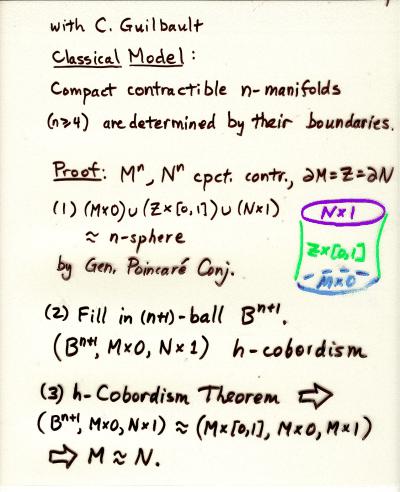 with C. Guilbault
Classical Model:
Compact contractible n-manifolds
(n≥4) are determined by their boundaries.
Proof: Mⁿ, Nⁿ cpct. contr., ∂M=Z=∂N
(1) (M×0)∪(Z×[0,1])∪(N×1)
≈ n-sphere
by Gen. Poincaré Conj.
N×1
Z×[0,1]
M×0
(2) Fill in (n+1)-ball Bⁿ⁺¹.
(Bⁿ⁺¹, M×0, N×1) h-cobordism
(3) h-Cobordism Theorem ⇨
(Bⁿ⁺¹, M×0, N×1) ≈ (M×[0,1], M×0, M×1)
⇨ M ≈ N.